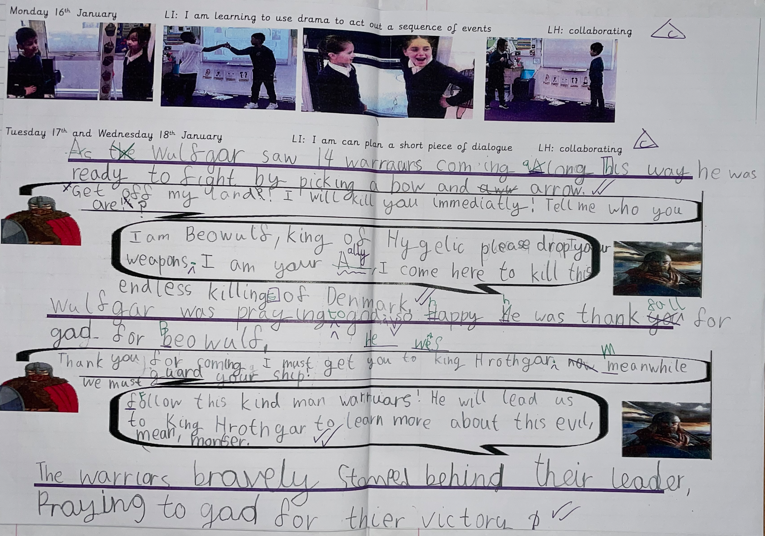 Monday 16th January LI: I am learning to use drama to act out a sequence of events LH: collaborating
C
Tuesday 17th and Wednesday 18th January LI: I am can plan a short piece of dialogue LH: collaborating
C
As Wulfgar saw 14 warraurs coming along This way he was
ready to fright by picking a bow and arrow.
Get off my land! I will kill you immediatly! Tell me who you
are!?
I am Beowulf, king of Hygelic please drop your
weapons, I am your Ally, I come here to kill this
endless killing of Denmark
Wulfgar was praying to god happy He was thank full for
gad for Beowulf,
He we's
Thank you for coming, I must get you to king Hrothgar, meanwhile
we must guard your ship!
follow this kind man warruars! He will lead us
to King Hrothgar to learn more about this evil,
mean, monser.
The warriors bravely Stamped behind their leader,
Praying to gad for thier victory